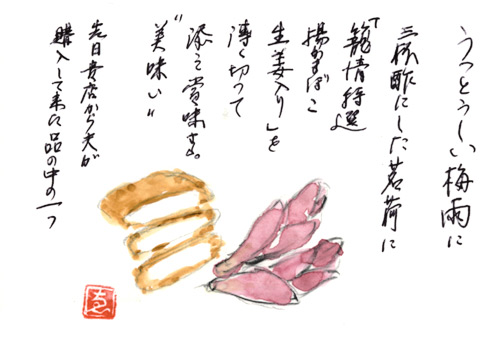 うっとうしい梅雨に
三杯酢にした茗荷に
「籠情特選
揚かまぼこ
生姜入り」を
薄く切って
添え賞味する。
"美味い"
先日貴店から夫が
購入して来た品の中の一つ
ゑ